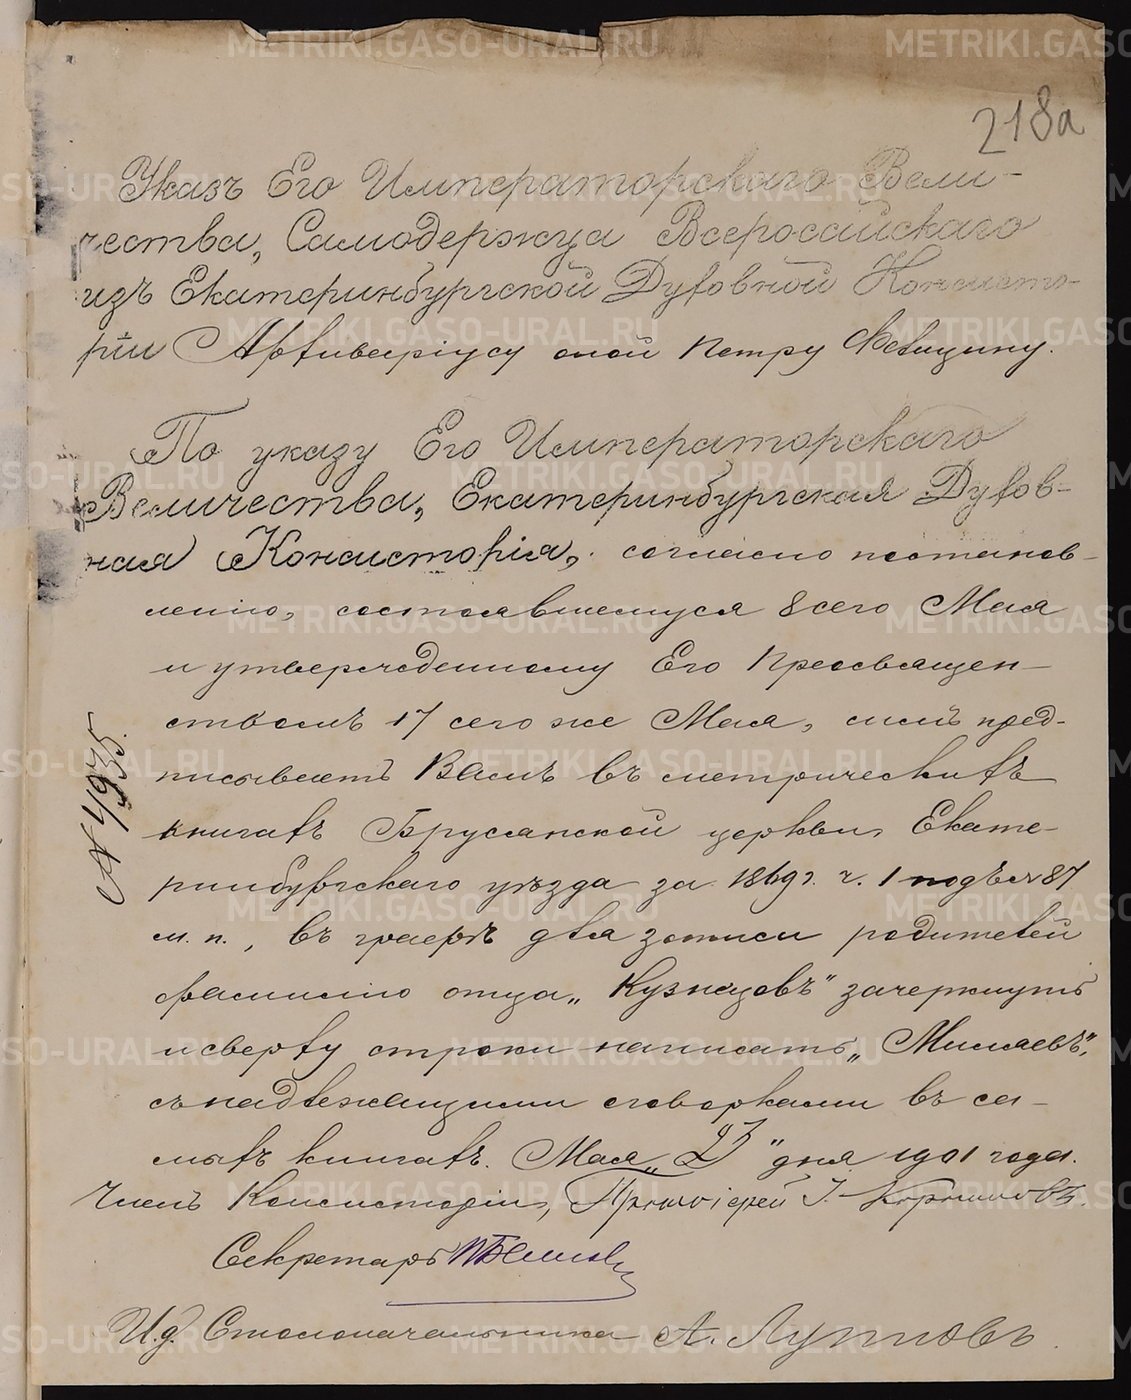 218а
Указъ Его Императорскаго Вели-
чества, Самодержца Всероссійскаго
изъ Екатеринбургской Духовной Консисто-
ріи Архиваріусу оной Петру
По указу Его Императорскаго
Величества, Екатеринбургская Духов-
ная Консисторія, согласно постанов-
ленію, состоявшемуся 8 сего Мая
и утвержденному Его Преосвящен-
ствомъ 17 сего же Мая, симъ пред-
писываетъ Вамъ въ метрическихъ
книгахъ Бруссянской церкви, Екате-
ринбургскаго уѣзда за 1869 г. ч. 1 подъ № 87
м. п., въ графѣ для записи родителей
фамилію отца „Кузнецовъ" зачеркнуть
и сверху строки написать „Минаевъ",
съ надлежащими оговорками въ са-
мыхъ книгахъ. Мая „23" дня 1901 года.
Членъ Консисторіи, Протоіерей І.
Секретарь
И.д. Столоначальника А. Лупповъ.
№ 4935.
METRIKI.GASO-URAL.RU